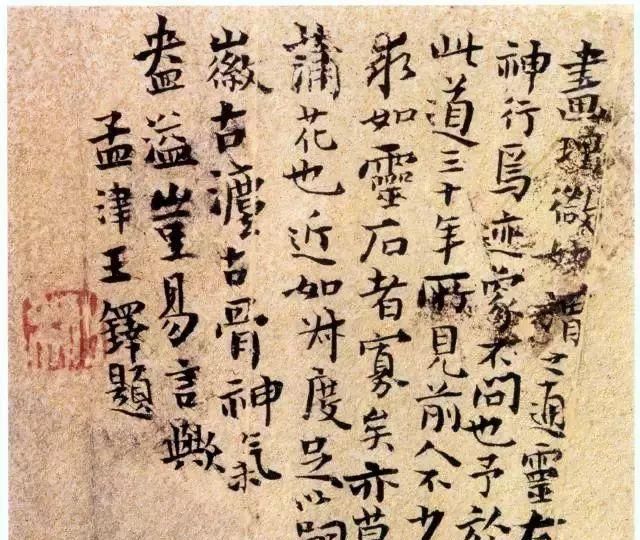 畫理微妙謂之通靈
神行焉迹象不問也予於
此道三十年所見前人不少
求如靈石者寡矣亦莫
蒲花也近如度足以
徽古古骨神氣
盎溢豈易言歟
孟津王鐸題